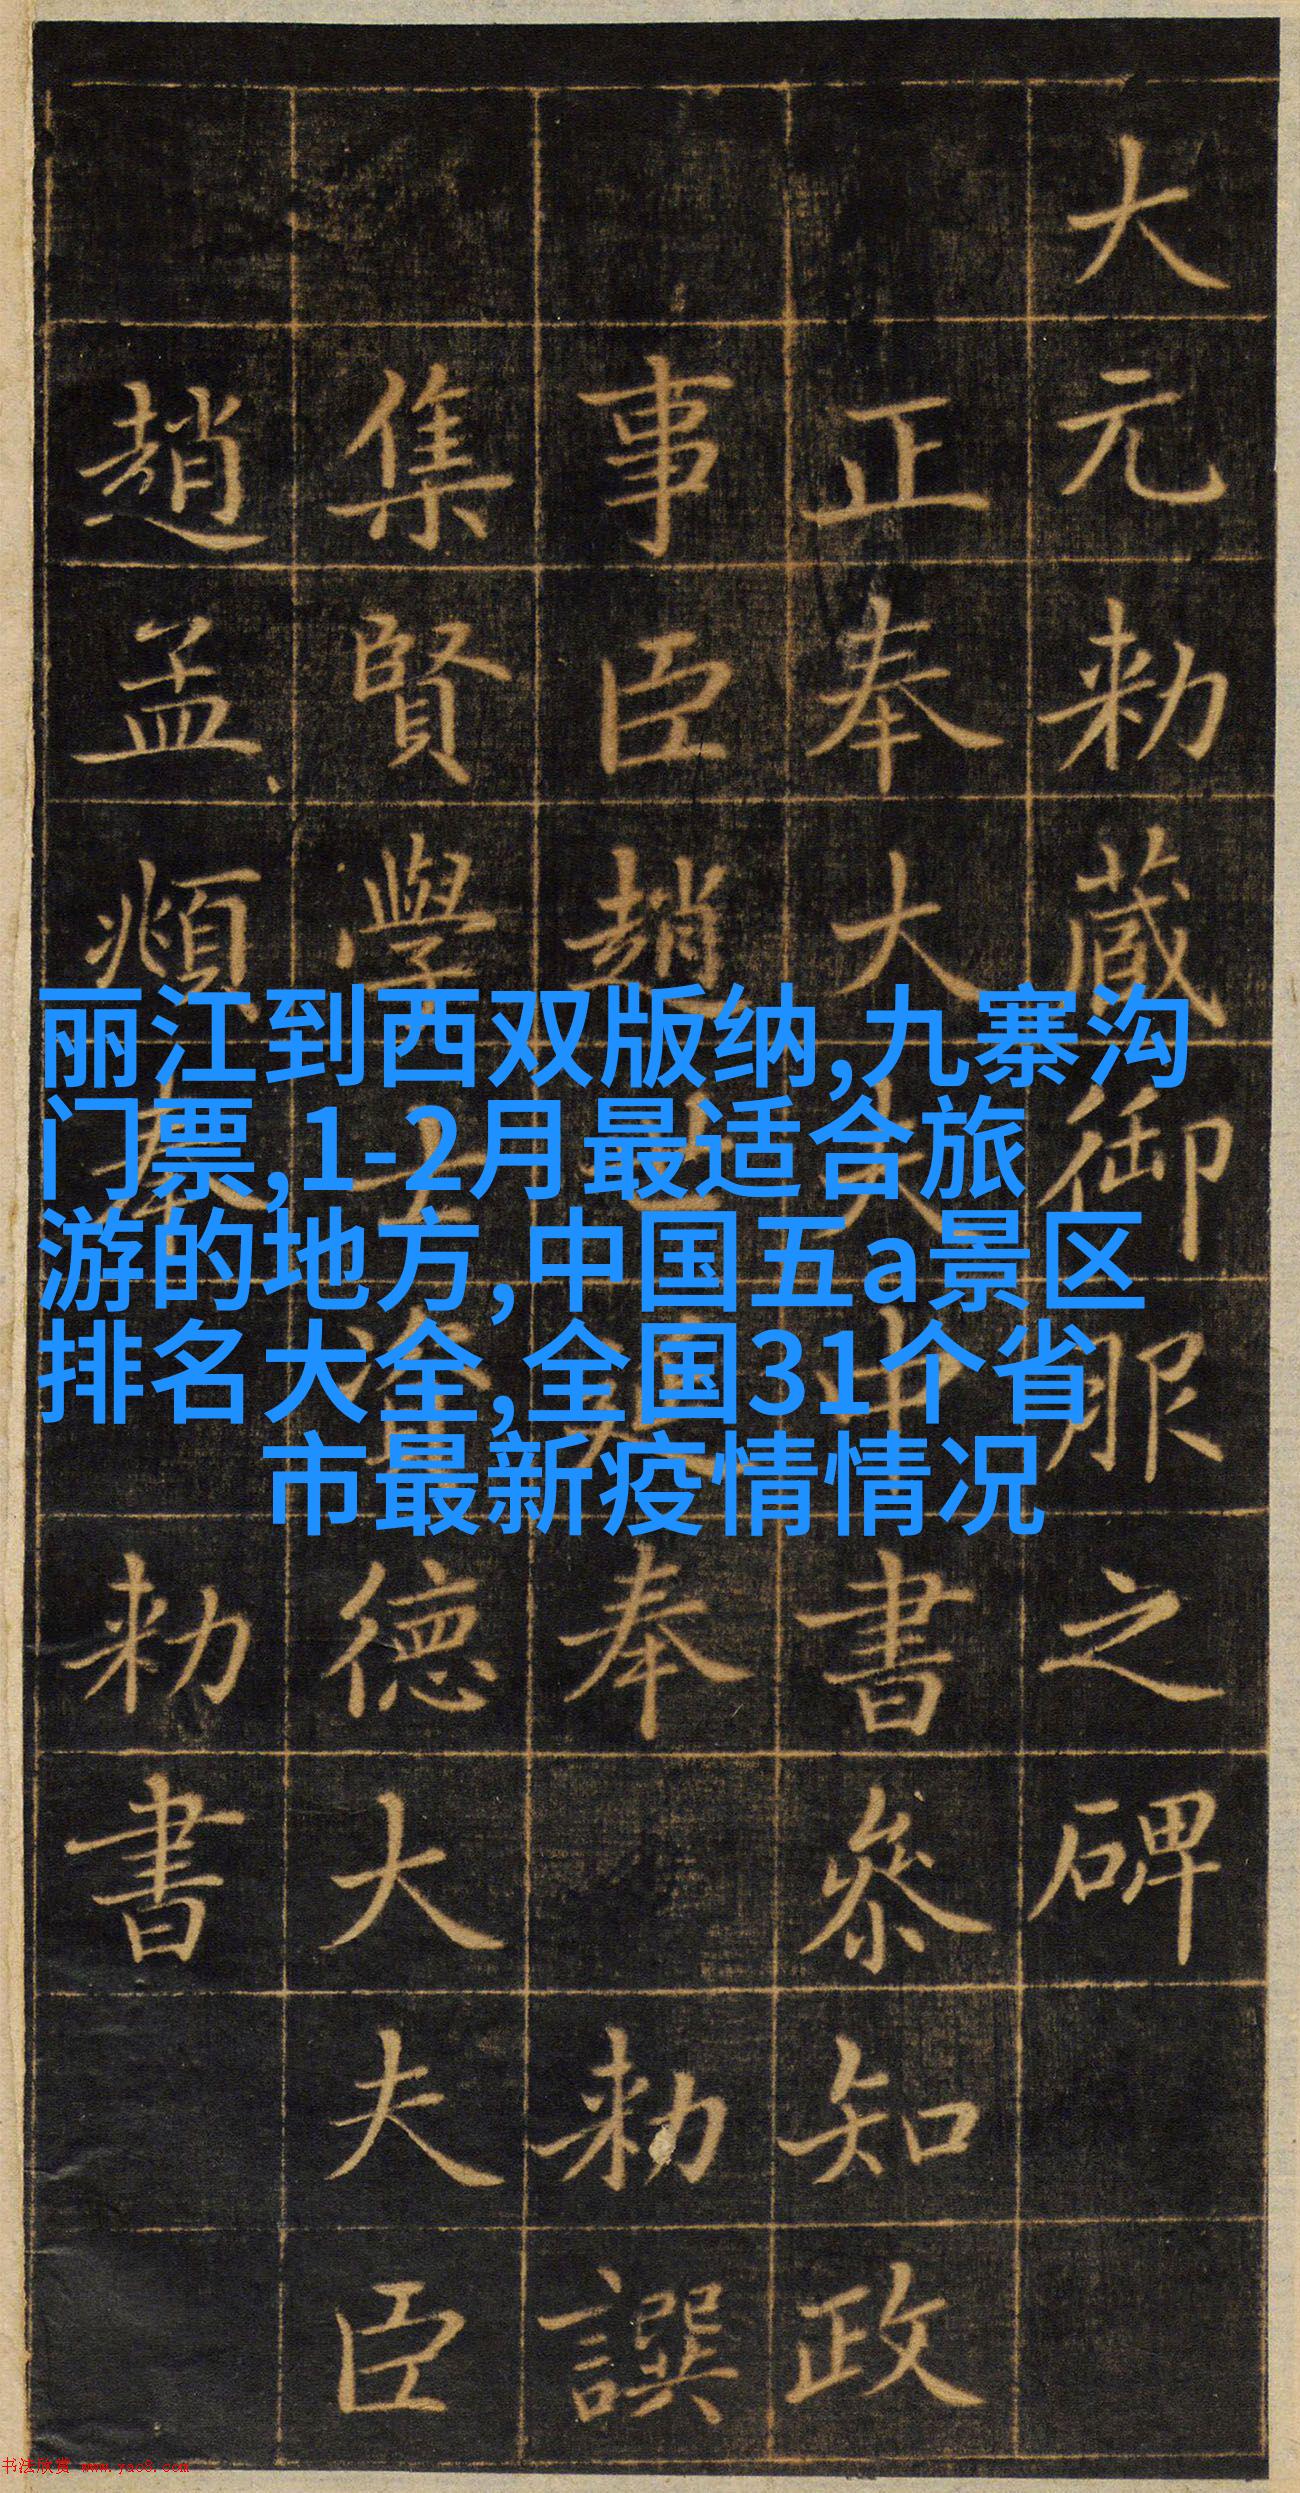 大元勅藏御服之碑
正奉大夫中書叅知政
事臣趙世延奉勅譔
集賢學士資德大夫臣
趙孟頫奉勅書
丽江到西双版纳,九寨沟
门票,1-2月最适合旅
游的地方,中国五a景区
排名大全,全国31个省
市最新疫情情况
书法欣赏 www.yac8.com